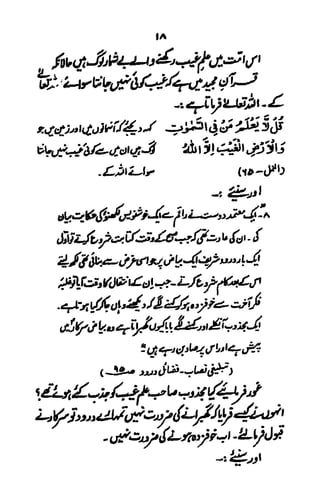 ۱۸
اس امت میں علم غیب رکھنے والے بے شمار لوگ ہیں حالانکہ
قرآن مجید میں ہے کہ غیب کوئی نہیں جانتا سوائے اللہ تعالٰے
کے۔ اللہ تعالٰے فرماتا ہے:۔
قُلْ لَّا يَعْلَمُ مَنْ فِي السَّمٰوٰتِ کہہ دیجئے کہ آسمانوں میں اور زمین میں جو
وَالْاَرْضِ الْغَيْبَ اِلَّا اللّٰهُ لوگ ہیں ان میں سے کوئی غیب نہیں جانتا
(النمل - ۶۵) سوائے اللہ کے۔
اور سنیئے :۔
۸۔ ایک معتمد دوست نے راقم سے ایک خوشنویس لکھنؤ کی حکایت بیان
کی۔ ان کی عادت تھی کہ جب صبح کے وقت کتابت شروع کرتے تو اول
ایک بار درود شریف ایک بیاض پر جو اسی غرض سے بنائی تھی لکھ لیتے
اس کے بعد کام شروع کرتے۔ جب ان کے انتقال کا وقت آیا تو غلبۂ
فکر آخرت سے خوفزدہ ہو کر کہنے لگے کہ دیکھئے وہاں جا کر کیا ہوتا ہے۔
ایک مجذوب آ نکلے اور کہنے لگے بابا کیوں گھبراتا ہے وہ بیاض سرکار میں
پیش ہے اور اس پر صاد بن رہے ہیں"
(تبلیغی نصاب - فضائل درود ص ۹۵)
غور فرمائیے کیا مجذوب صاحب علم غیب کو جذب کئے ہوئے تھے؟
انہوں نے کیسے فرمایا کہ گھبرانے کی ضرورت نہیں تمہارے درود تو سرکار نے
قبول فرما لئے۔ اب خوفزدہ ہونے کی ضرورت نہیں۔
اور سنیئے :۔